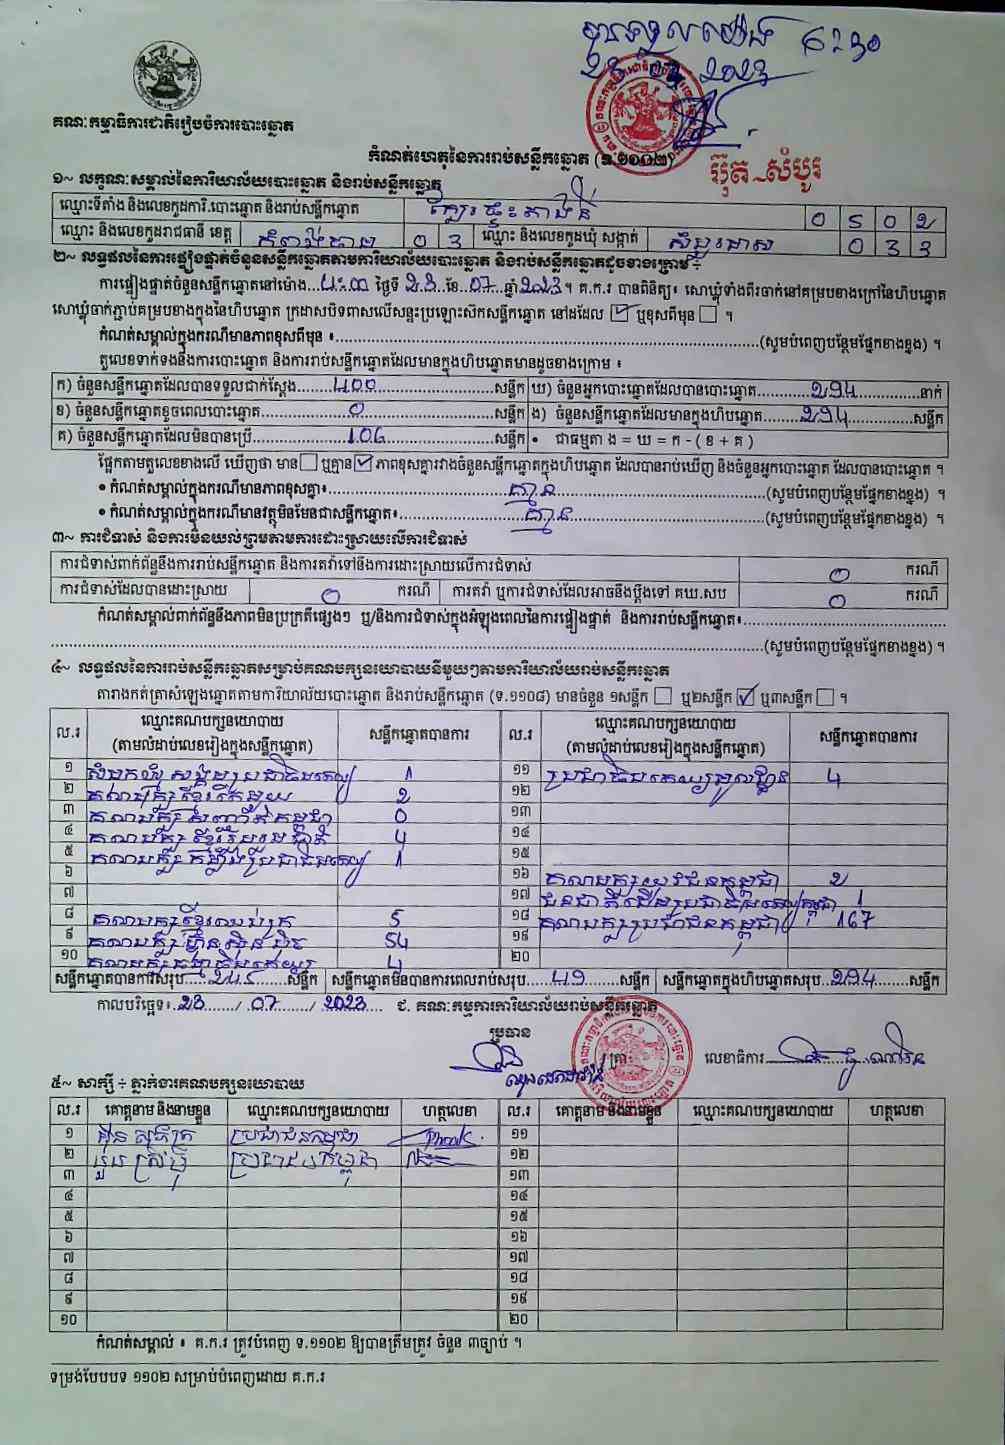 6230
23 07 2023
គណៈកម្មាធិការជាតិរៀបចំការបោះឆ្នោត
កំណត់ហេតុនៃការរាប់សន្លឹកឆ្នោត (ទ.១១០២)
អ៊ុត សំបូរ
១~ លក្ខណៈសម្គាល់នៃការិយាល័យបោះឆ្នោត និងរាប់សន្លឹកឆ្នោត
ឈ្មោះទីតាំង និងលេខកូដការិ.បោះឆ្នោត និងរាប់សន្លឹកឆ្នោត 0 5 0 2
ឈ្មោះ និងលេខកូដរាជធានី ខេត្ត កំពង់ចាម 0 3 ឈ្មោះ និងលេខកូដឃុំ សង្កាត់ 0 3 3
២~ លទ្ធផលនៃការផ្ទៀងផ្ទាត់ចំនួនសន្លឹកឆ្នោតតាមការិយាល័យបោះឆ្នោត និងរាប់សន្លឹកឆ្នោតដូចខាងក្រោម ÷
ការផ្ទៀងផ្ទាត់ចំនួនសន្លឹកឆ្នោតនៅម៉ោង ថ្ងៃទី 23 ខែ 07 ឆ្នាំ 2023 ។ គ.ក.រ បានពិនិត្យ៖ សោឃ្លុំទាំងពីរចាក់នៅគម្របខាងក្រៅនៃហិបឆ្នោត
សោឃ្លុំចាក់ភ្ជាប់គម្របខាងក្នុងនៃហិបឆ្នោត ក្រដាសបិទពាសលើសន្ទះប្រឡោះសិកសន្លឹកឆ្នោត នៅដដែល ☑ ឬខុសពីមុន ☐ ។
កំណត់សម្គាល់ក្នុងករណីមានភាពខុសពីមុន ៖ (សូមបំពេញបន្ថែមផ្នែកខាងខ្នង) ។
តួលេខទាក់ទងនឹងការបោះឆ្នោត និងការរាប់សន្លឹកឆ្នោតដែលមានក្នុងហិបឆ្នោតមានដូចខាងក្រោម ៖
ក) ចំនួនសន្លឹកឆ្នោតដែលបានទទួលជាក់ស្តែង 400 សន្លឹក ឃ) ចំនួនអ្នកបោះឆ្នោតដែលបានបោះឆ្នោត 294 នាក់
ខ) ចំនួនសន្លឹកឆ្នោតខូចពេលបោះឆ្នោត 0 សន្លឹក ង) ចំនួនសន្លឹកឆ្នោតដែលមានក្នុងហិបឆ្នោត 294 សន្លឹក
គ) ចំនួនសន្លឹកឆ្នោតដែលមិនបានប្រើ 106 សន្លឹក • ជាធម្មតា ង = ឃ = ក - ( ខ + គ )
ផ្អែកតាមតួលេខខាងលើ ឃើញថា មាន ☐ ឬគ្មាន ☑ ភាពខុសគ្នារវាងចំនួនសន្លឹកឆ្នោតក្នុងហិបឆ្នោត ដែលបានរាប់ឃើញ និងចំនួនអ្នកបោះឆ្នោត ដែលបានបោះឆ្នោត ។
• កំណត់សម្គាល់ក្នុងករណីមានភាពខុសគ្នា៖ គ្មាន (សូមបំពេញបន្ថែមផ្នែកខាងខ្នង) ។
• កំណត់សម្គាល់ក្នុងករណីមានវត្ថុមិនមែនជាសន្លឹកឆ្នោត៖ គ្មាន (សូមបំពេញបន្ថែមផ្នែកខាងខ្នង) ។
៣~ ការជំទាស់ និងការមិនយល់ព្រមតាមការដោះស្រាយលើការជំទាស់
ការជំទាស់ពាក់ព័ន្ធនឹងការរាប់សន្លឹកឆ្នោត និងការតវ៉ាទៅនឹងការដោះស្រាយលើការជំទាស់ 0 ករណី
ការជំទាស់ដែលបានដោះស្រាយ 0 ករណី ការតវ៉ា ឬការជំទាស់ដែលអាចនឹងប្តឹងទៅ គឃ.សប 0 ករណី
កំណត់សម្គាល់ពាក់ព័ន្ធនឹងភាពមិនប្រក្រតីផ្សេងៗ ឬ/និងការជំទាស់ក្នុងអំឡុងពេលនៃការផ្ទៀងផ្ទាត់ និងការរាប់សន្លឹកឆ្នោត៖
(សូមបំពេញបន្ថែមផ្នែកខាងខ្នង) ។
៤~ លទ្ធផលនៃការរាប់សន្លឹកឆ្នោតសម្រាប់គណបក្សនយោបាយនីមួយៗតាមការិយាល័យរាប់សន្លឹកឆ្នោត
តារាងកត់ត្រាសំឡេងឆ្នោតតាមការិយាល័យបោះឆ្នោត និងរាប់សន្លឹកឆ្នោត (ទ.១១០៨) មានចំនួន ១សន្លឹក ☐ ឬ២សន្លឹក ☑ ឬ៣សន្លឹក ☐ ។
ល.រ ឈ្មោះគណបក្សនយោបាយ (តាមលំដាប់លេខរៀងក្នុងសន្លឹកឆ្នោត) សន្លឹកឆ្នោតបានការ ល.រ ឈ្មោះគណបក្សនយោបាយ (តាមលំដាប់លេខរៀងក្នុងសន្លឹកឆ្នោត) សន្លឹកឆ្នោតបានការ
១ សំបុកឃ្មុំសង្គមប្រជាធិបតេយ្យ 1 ១១ ប្រជាធិបតេយ្យមូលដ្ឋាន 4
២ គណបក្សខ្មែរតែមួយ 2 ១២
៣ គណបក្ស កម្ពុជា 0 ១៣
៤ គណបក្សខ្មែររួបរួមជាតិ 4 ១៤
៥ គណបក្សកម្លាំងប្រជាធិបតេយ្យ 1 ១៥
៦ ១៦ គណបក្សយុវជនកម្ពុជា 2
៧ ១៧ ជនជាតិដើមប្រជាធិបតេយ្យកម្ពុជា 1
៨ គណបក្សខ្មែរឈប់ក្រ 5 ១៨ គណបក្សប្រជាជនកម្ពុជា 167
៩ គណបក្សហ៊្វុនស៊ិនប៉ិច 54 ១៩
១០ គណបក្សធម្មាធិបតេយ្យ 4 ២០
សន្លឹកឆ្នោតបានការសរុប 245 សន្លឹក សន្លឹកឆ្នោតមិនបានការពេលរាប់សរុប 49 សន្លឹក សន្លឹកឆ្នោតក្នុងហិបឆ្នោតសរុប 294 សន្លឹក
កាលបរិច្ឆេទ៖ 23 / 07 / 2023 ជ. គណៈកម្មការការិយាល័យរាប់សន្លឹកឆ្នោត
ប្រធាន
ត្រា លេខាធិការ
៥~ សាក្សី ÷ ភ្នាក់ងារគណបក្សនយោបាយ
ល.រ គោត្តនាម និងនាមខ្លួន ឈ្មោះគណបក្សនយោបាយ ហត្ថលេខា ល.រ គោត្តនាម និងនាមខ្លួន ឈ្មោះគណបក្សនយោបាយ ហត្ថលេខា
១ ប្រជាជនកម្ពុជា ១១
២ ប្រជាជនកម្ពុជា ១២
៣ ១៣
៤ ១៤
៥ ១៥
៦ ១៦
៧ ១៧
៨ ១៨
៩ ១៩
១០ ២០
កំណត់សម្គាល់ ៖ គ.ក.រ ត្រូវបំពេញ ទ.១១០២ ឱ្យបានត្រឹមត្រូវ ចំនួន ៣ច្បាប់ ។
ទម្រង់បែបបទ ១១០២ សម្រាប់បំពេញដោយ គ.ក.រ